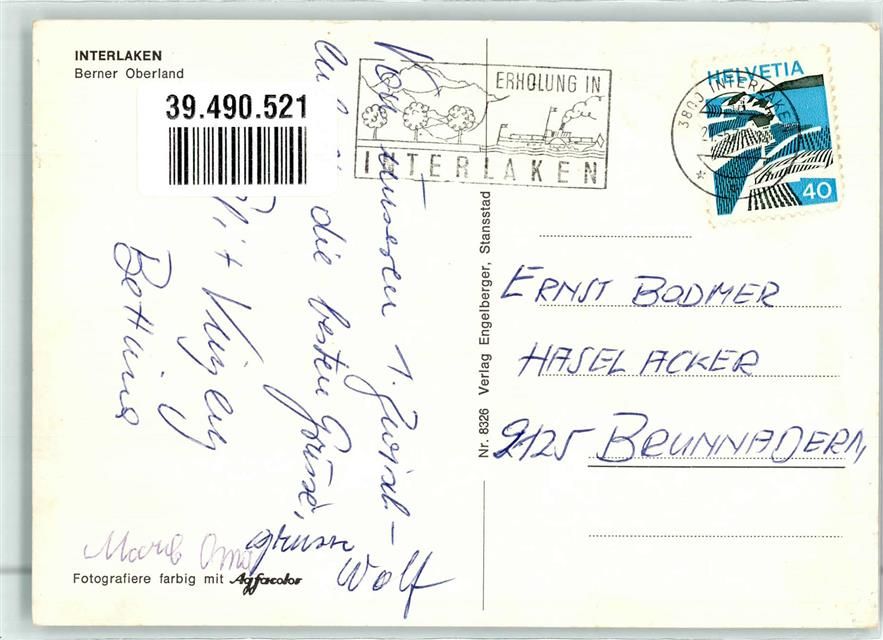 INTERLAKEN
Berner Oberland
39.490.521
ERHOLUNG IN
INTERLAKEN
HELVETIA
3800 INTERLAKEN
40
Von unserem 1.
die besten Grüsse,
Mit
Bettina
gruss
Wolf
Oma
Fotografiere farbig mit Agfacolor
Nr. 8326 Verlag Engelberger, Stansstad
ERNST BODMER
HASELACKER
9125 BRUNNADERN